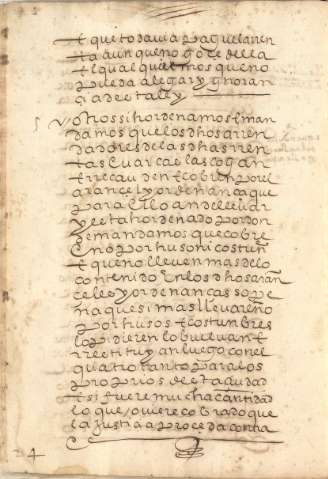 E que todavia pague la ren
ta aunque no goçe della
El qual queremos que no
pueda alegar ygnoran
çia deeta ley
otrossi hordenamos E man
damos que los dhos arren
dadores de las dhas rren
tas E uarca e las cojan
E rrecauden E cobren por el
aranzel y ordenança que
para ello an de lleuar
y eeta hordenado por don
de mandamos que cobre
E no por huso ni costun
E que no lleuen mas de lo
contenido En los dhos aran
celes y ordenanças so pe
na que si mas lleuaren o
por husos E costunbres
lo pidieren lo bueluan E
rrestituyan luego con el
quatro tanto para los
proprios de eeta ciudad
E si fuere mucha cantidad
lo que ouiere cobrado que
la justicia proceda conta